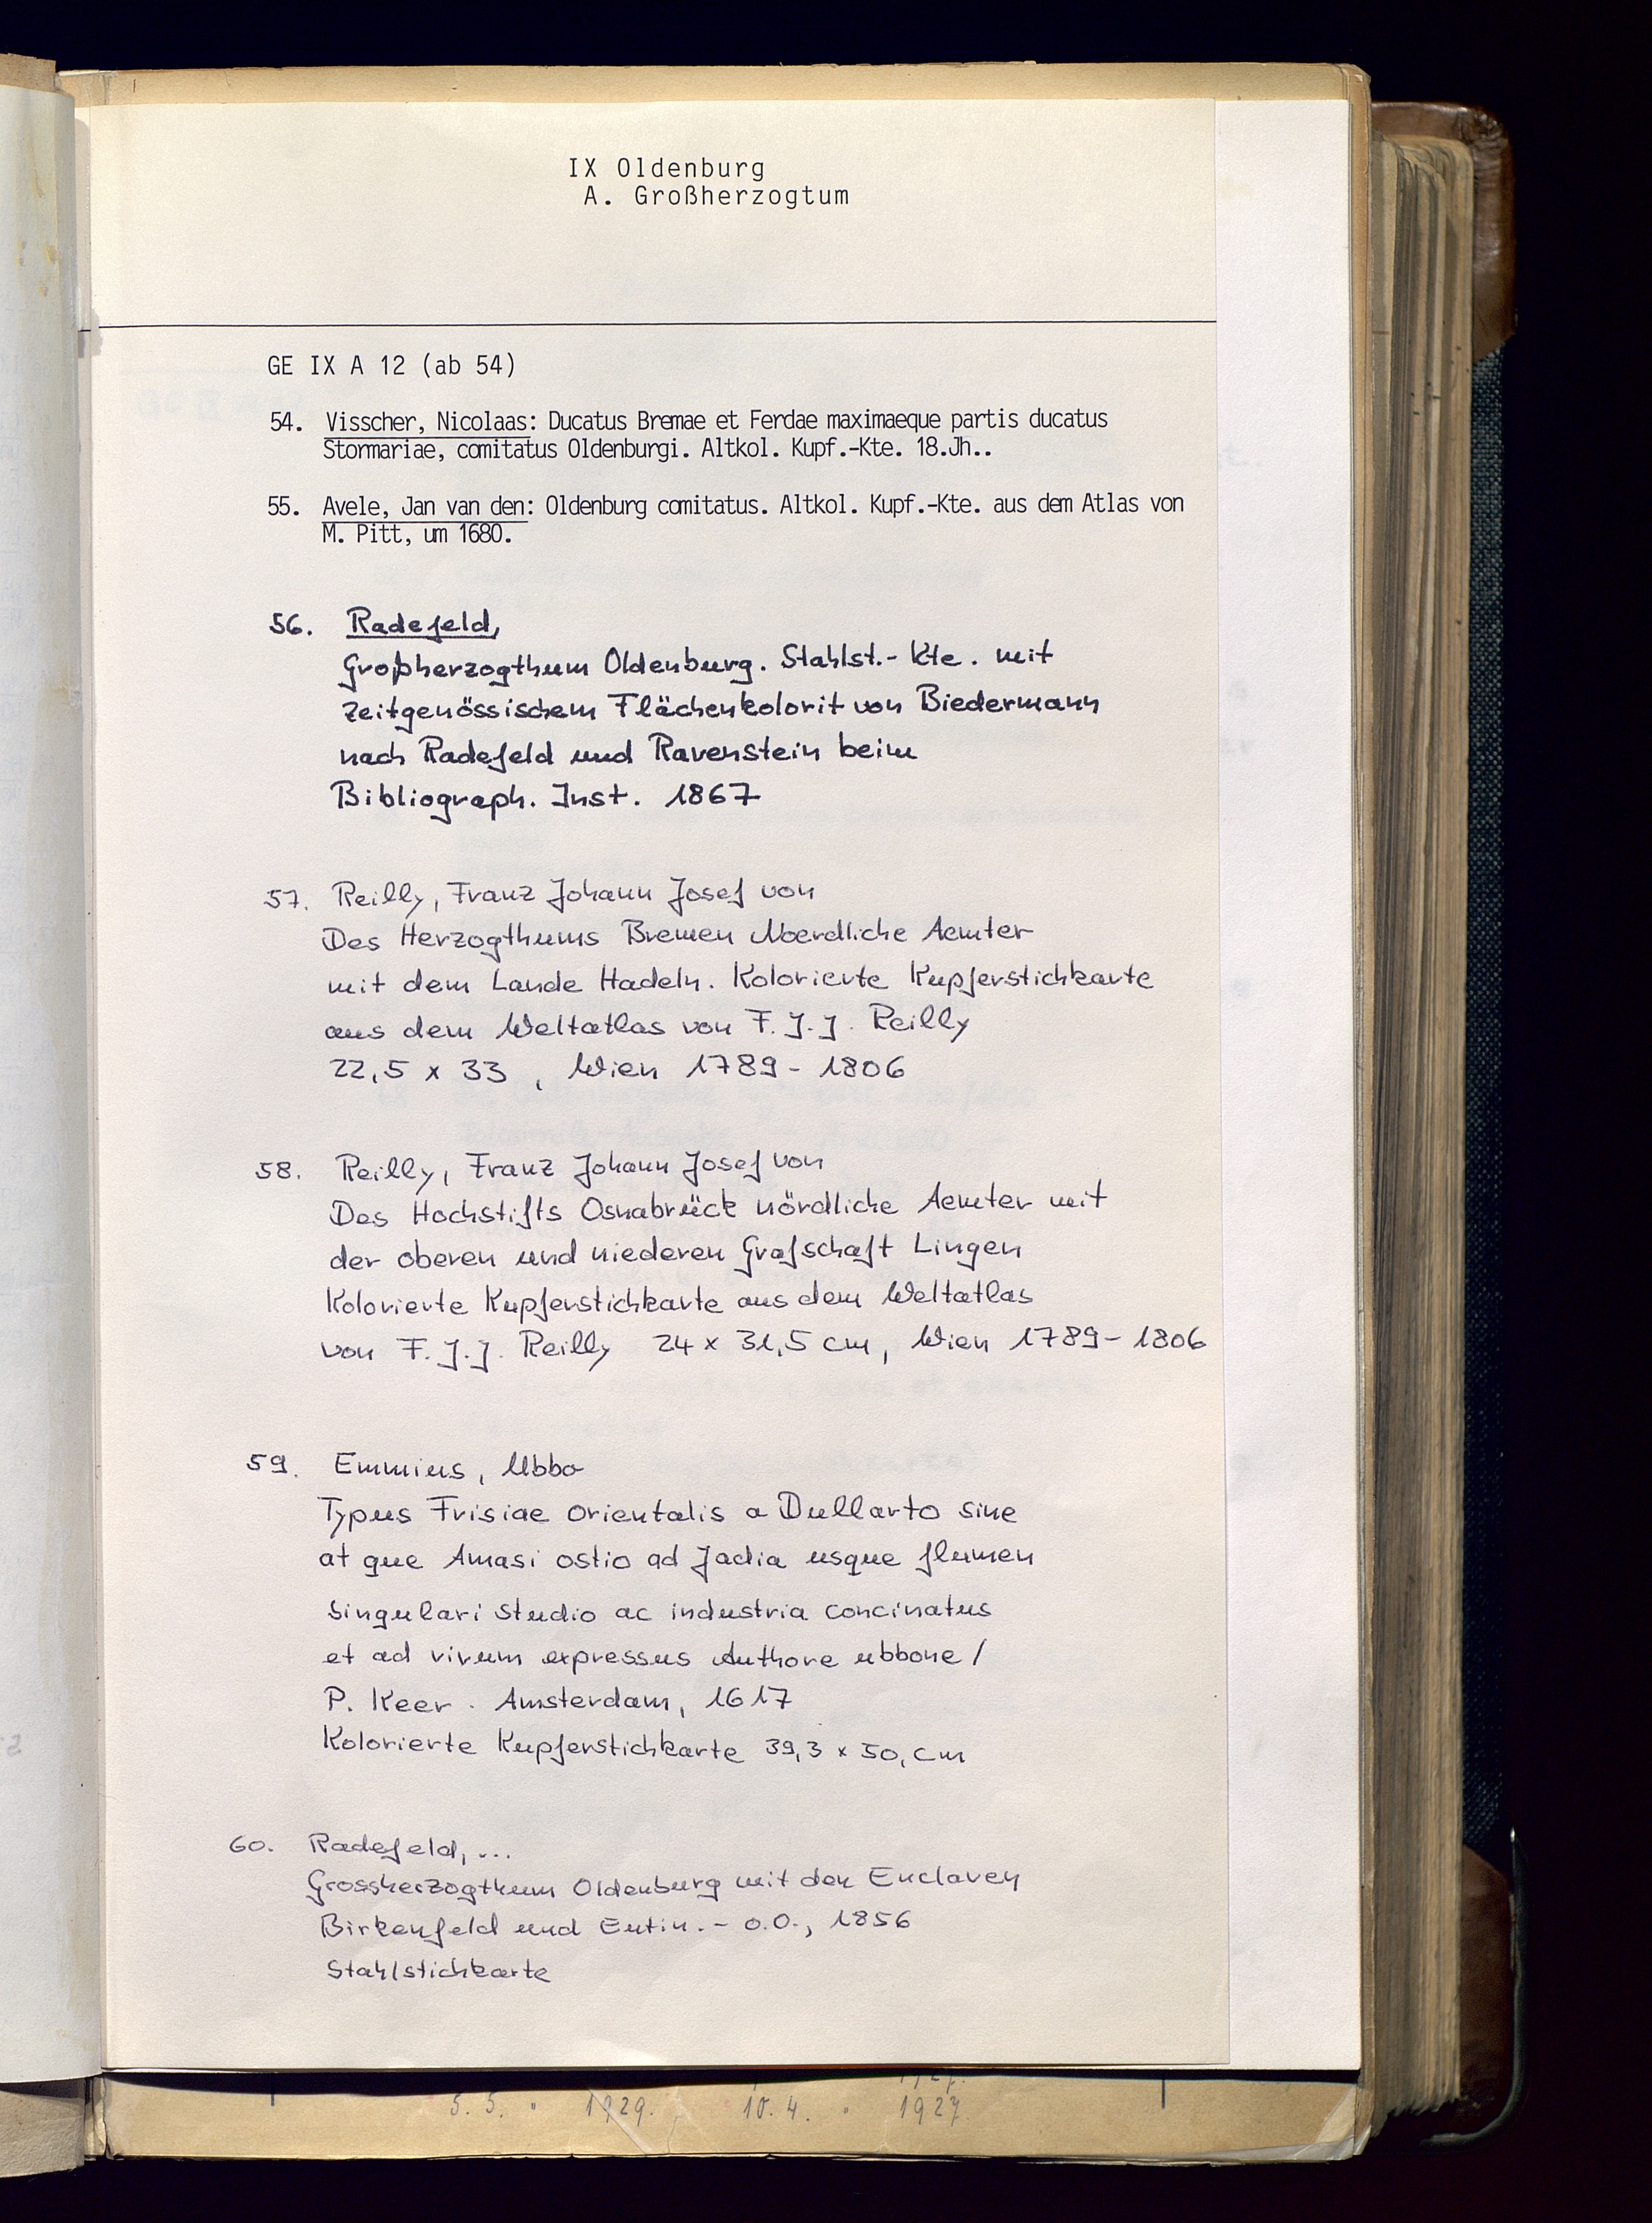 IX Oldenburg
A. Großherzogtum
GE IX A 12 (ab 54)
54. Visscher, Nicolaas: Ducatus Bremae et Ferdae maximaeque partis ducatus
Stormariae, comitatus Oldenburgi. Altkol. Kupf.-Kte. 18.Jh..
55. Avele, Jan van den: Oldenburg comitatus. Altkol. Kupf.-Kte. aus dem Atlas von
M. Pitt, um 1680.
56. Radefeld,
Großherzogthum Oldenburg. Stahlst.-Kte. mit
zeitgenössischem Flächenkolorit von Biedermann
nach Radefeld und Ravenstein beim
Bibliograph. Inst. 1867
57. Reilly, Franz Johann Josef von
Des Herzogthums Bremen Noerdliche Aemter
mit dem Lande Hadeln. Kolorierte Kupferstichkarte
aus dem Weltatlas von F. J. J. Reilly
22,5 x 33, Wien 1789-1806
58. Reilly, Franz Johann Josef von
Des Hochstifts Osnabrück nördliche Aemter mit
der oberen und niederen Grafschaft Lingen
Kolorierte Kupferstichkarte aus dem Weltatlas
von F. J. J. Reilly 24 x 31,5 cm, Wien 1789-1806
59. Emmius, Ubbo
Typus Frisiae Orientalis a Dullarto sine
at que Amasi ostio ad Jadia usque flumen
Singulari Studio ac industria concinatus
et ad vivum expressus Authore ubbone /
P. Keer. Amsterdam, 1617
Kolorierte Kupferstichkarte 39,3 x 50, cm
60. Radefeld, ...
Grossherzogthum Oldenburg mit den Enclaven
Birkenfeld und Eutin.- o.O., 1856
Stahlstichkarte
5. 5. " 1929. 10. 4. " 1927